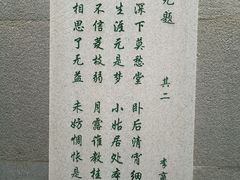 无题 其二 李商
深下莫愁堂 卧后清宵细
生涯元是梦 小姑居处本
不信菱枝弱 月露谁教桂
相思了无益 未妨惆怅是